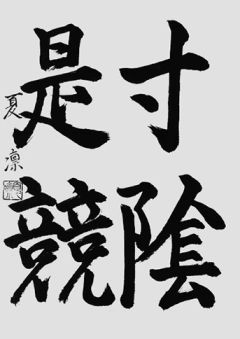 寸陰
是競
夏凛